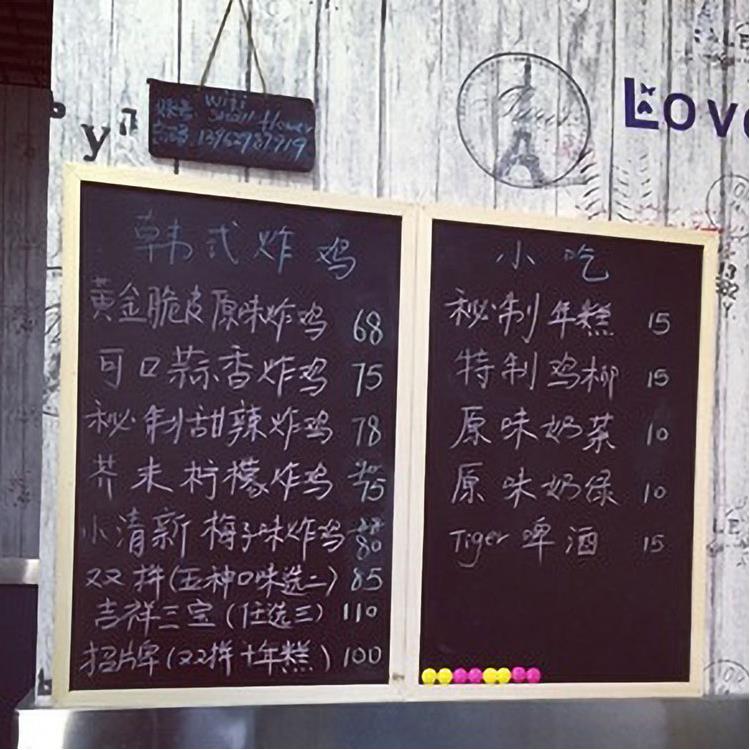 y
wifi
账号 Small flower
LOVE
Paris
韩式炸鸡
黄金脆皮原味炸鸡 68
可口蒜香炸鸡 75
秘制甜辣炸鸡 78
芥末柠檬炸鸡 75
小清新梅子味炸鸡 80
双拼(五神口味选二) 85
吉祥三宝(任选三) 110
招牌(双拼+年糕) 100
小吃
秘制年糕 15
特制鸡柳 15
原味奶茶 10
原味奶绿 10
Tiger 啤酒 15